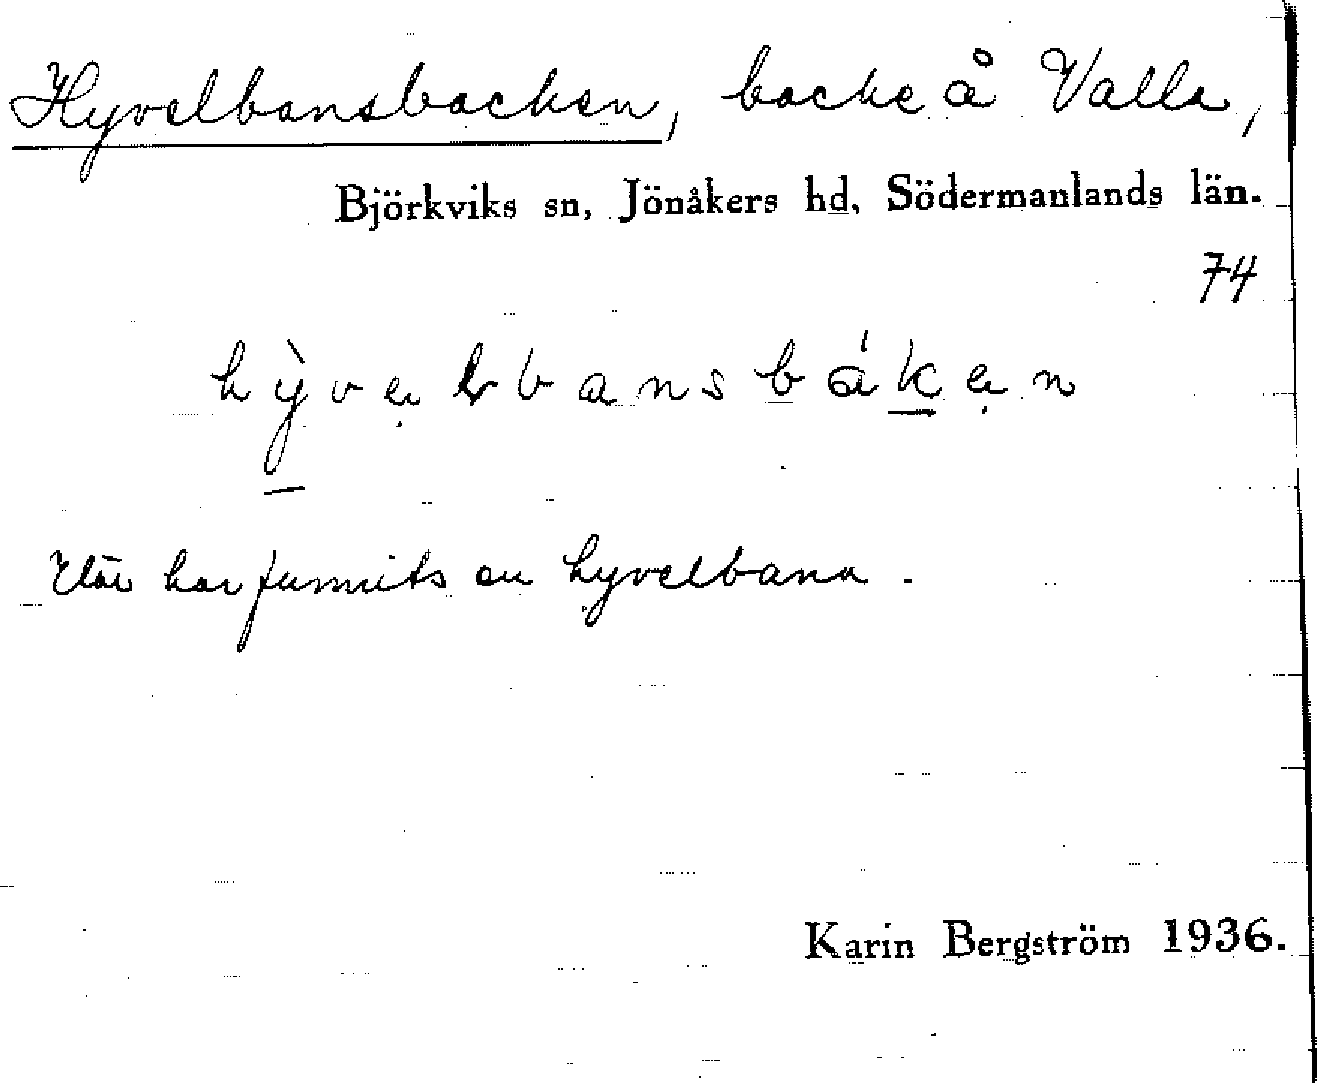 Hyvelbansbacken, backe å Valla,
Björkviks sn, Jönåkers hd, Södermanlands län.
74
hỳvẹlbansbákẹn
Här har funnits en hyvelbana.
Karin Bergström 1936.